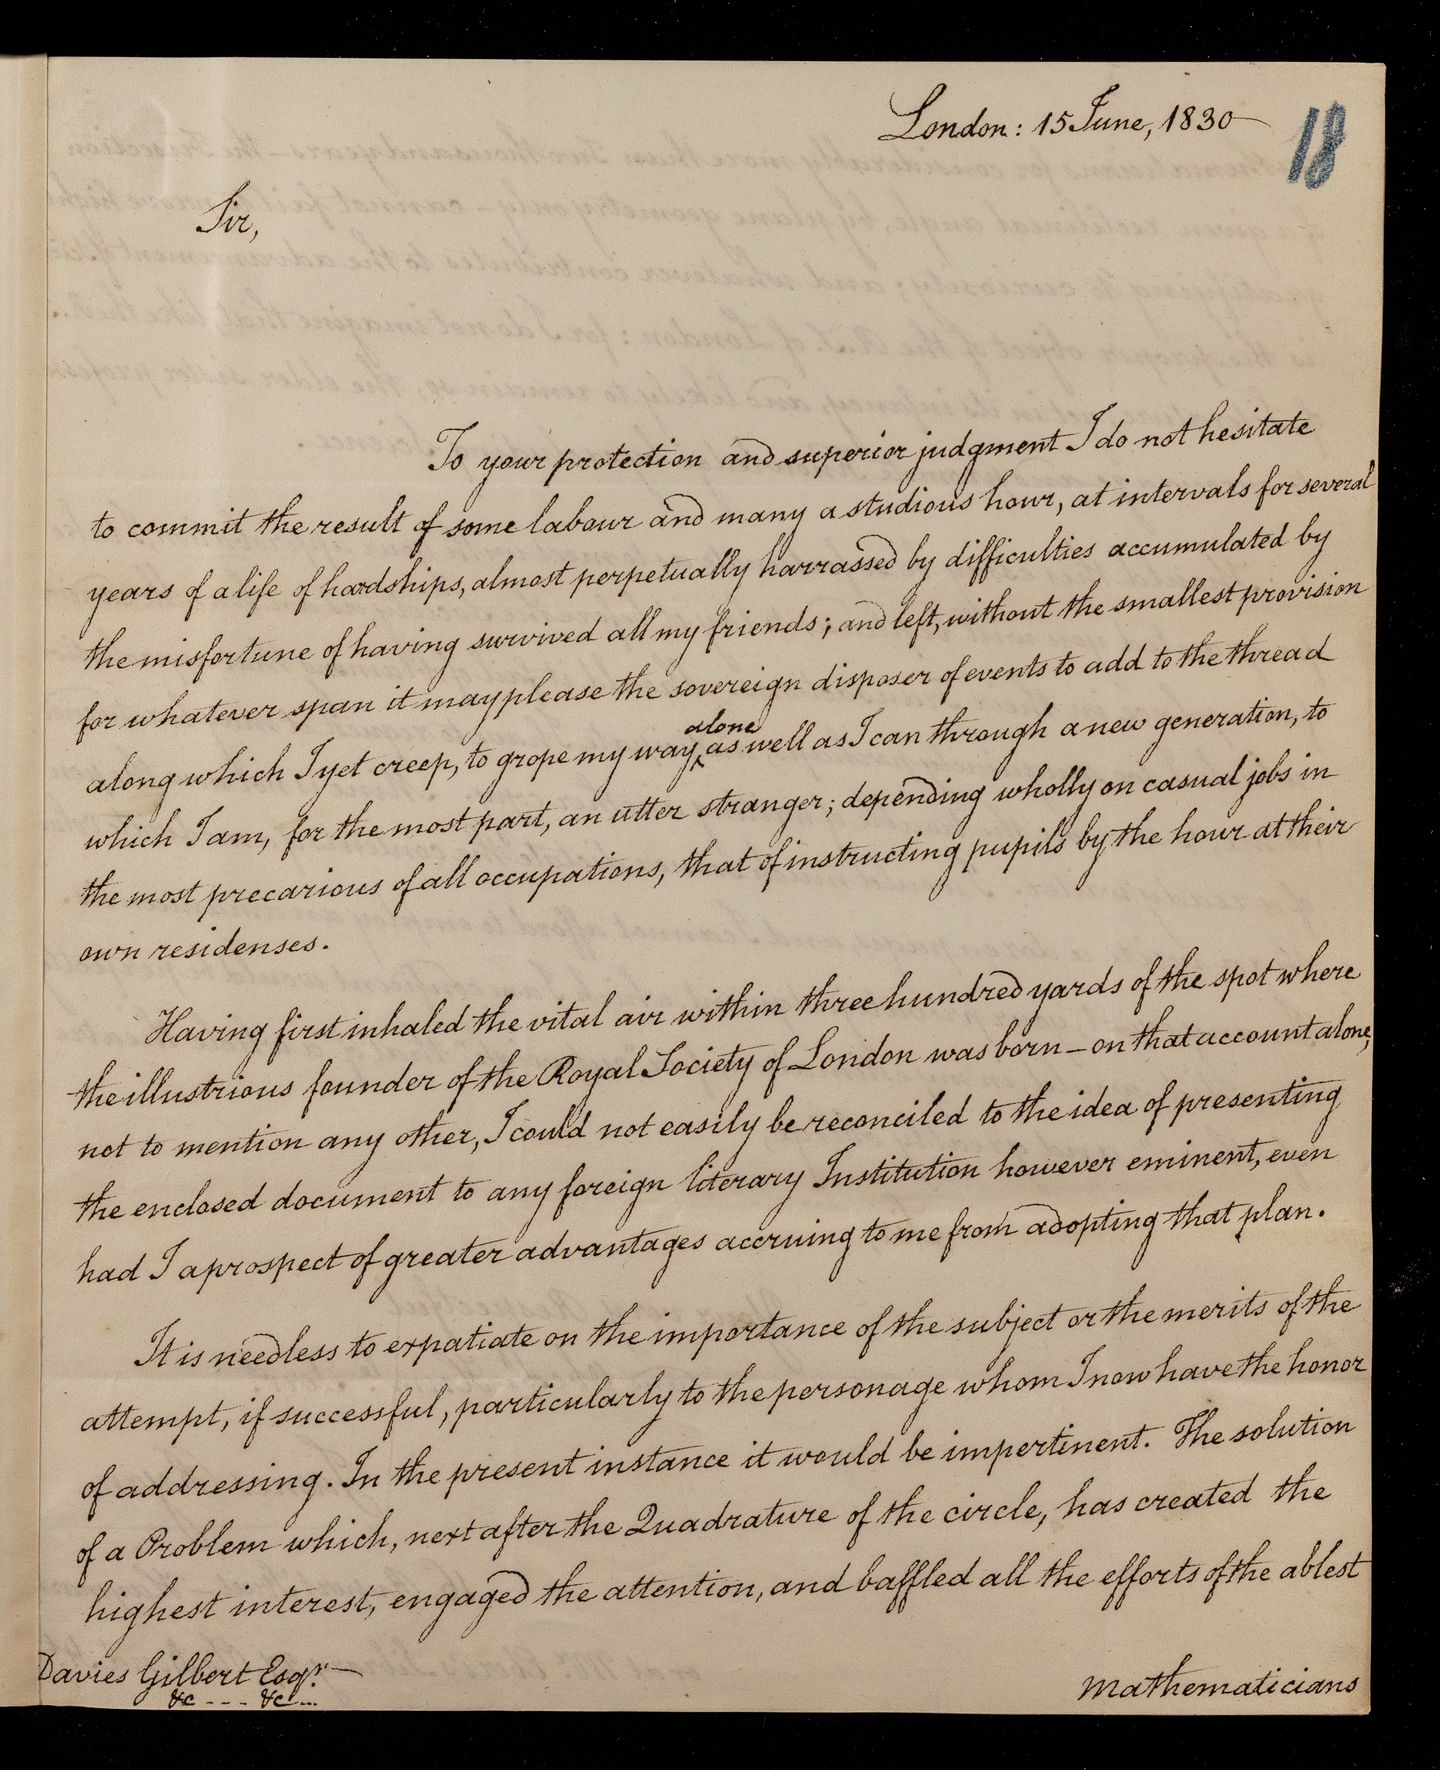 London: 15 June, 1830
18
Sir,
To your protection and superior judgment I do not hesitate
to commit the result of some labour and many a studious hour, at intervals for several
years of a life of hardships, almost perpetually harrassed by difficulties accumulated by
the misfortune of having survived all my friends; and left, without the smallest provision
for whatever span it may please the sovereign disposer of events to add to the thread
along which I yet creep, to grope my way ‸alone as well as I can through a new generation, to
which I am, for the most part, an utter stranger; depending wholly on casual jobs in
the most precarious of all occupations, that of instructing pupils by the hour at their
own residenses.
Having first inhaled the vital air within three hundred yards of the spot where
the illustrious founder of the Royal Society of London was born – on that account alone,
not to mention any other, I could not easily be reconciled to the idea of presenting
the enclosed document to any foreign literary Institution however eminent, even
had I a prospect of greater advantages accruing to me from adopting that plan.
It is needless to expatiate on the importance of the subject or the merits of the
attempt, if successful, particularly to the personage whom I now have the honor
of addressing. In the present instance it would be impertinent. The solution
of a Problem which, next after the Quadrature of the circle, has created the
highest interest, engaged the attention, and baffled all the efforts of the ablest
Davies Gilbert Esqr. —
&c --- &c ...
mathematicians